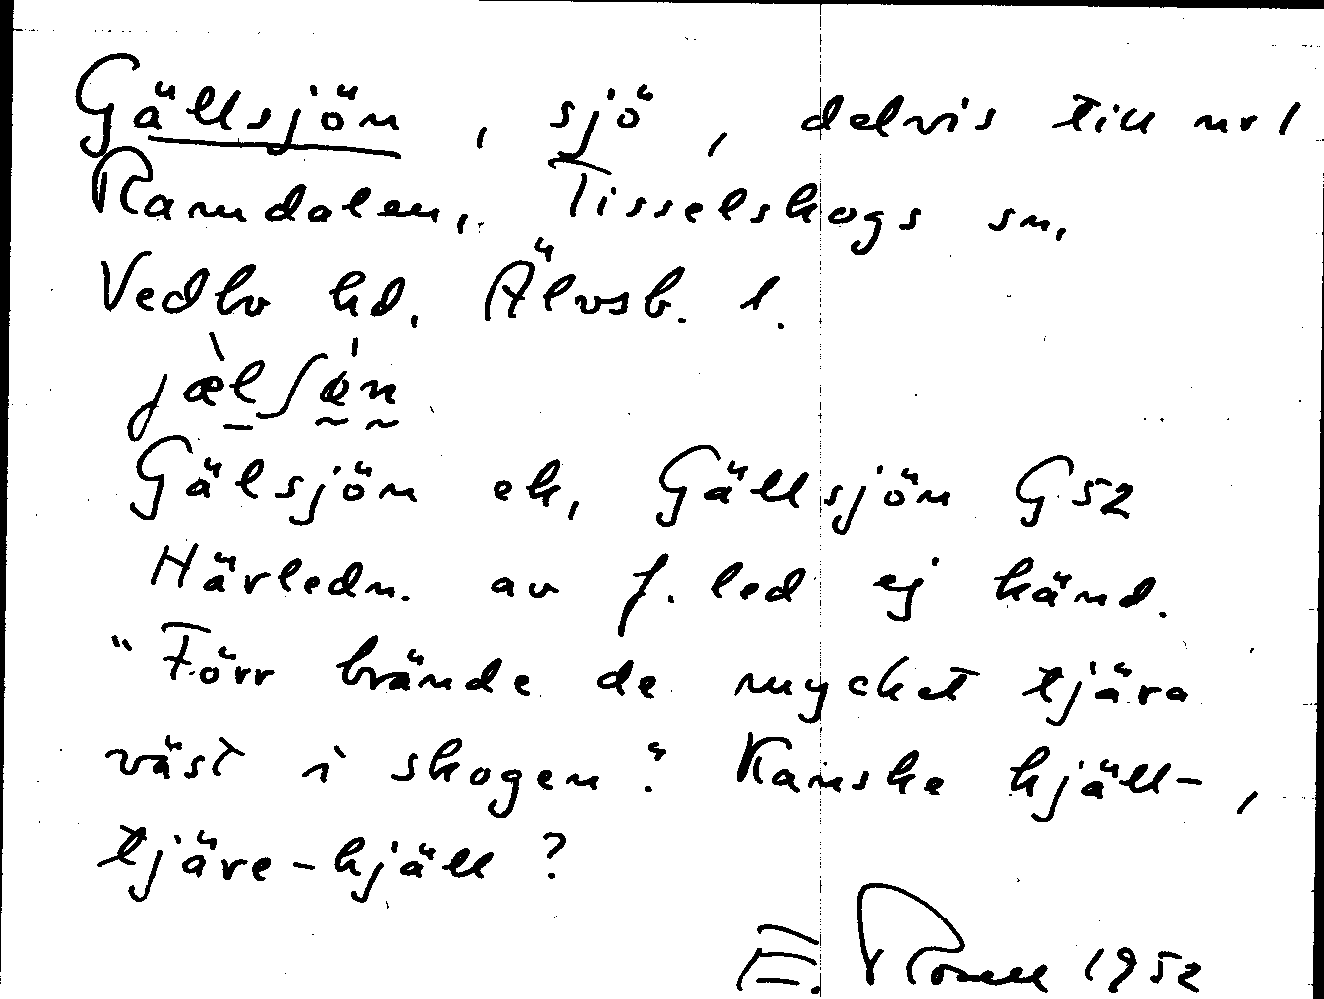 Gällsjön, sjö, delvis till nr 1
Ramdalen, Tisselskogs sn,
Vedbo hd, Älvsb. l.
jæ̀lʃø̀n
Gälsjön ek, Gällsjön G52
Härledn. av f. led ej känd.
"Förr brände de mycket tjära
väst i skogen". Kanske kjäll-,
tjäre-kjäll?
E. 1952